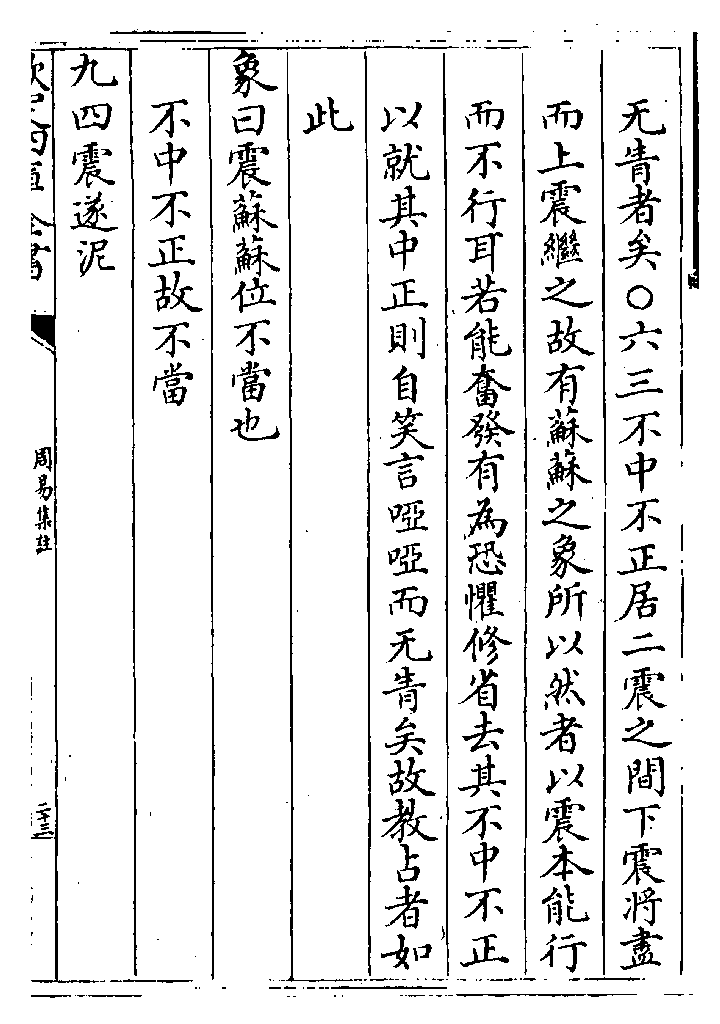 无眚者矣○六三不中不正居二震之間下震將盡
而上震繼之故有蘇蘇之象所以然者以震本能行
而不行耳若能奮發有為恐懼修省去其不中不正
以就其中正則自笑言啞啞而无眚矣故教占者如
此
象曰震蘇蘇位不當也
不中不正故不當
九四震遂泥
周易集註
二十三